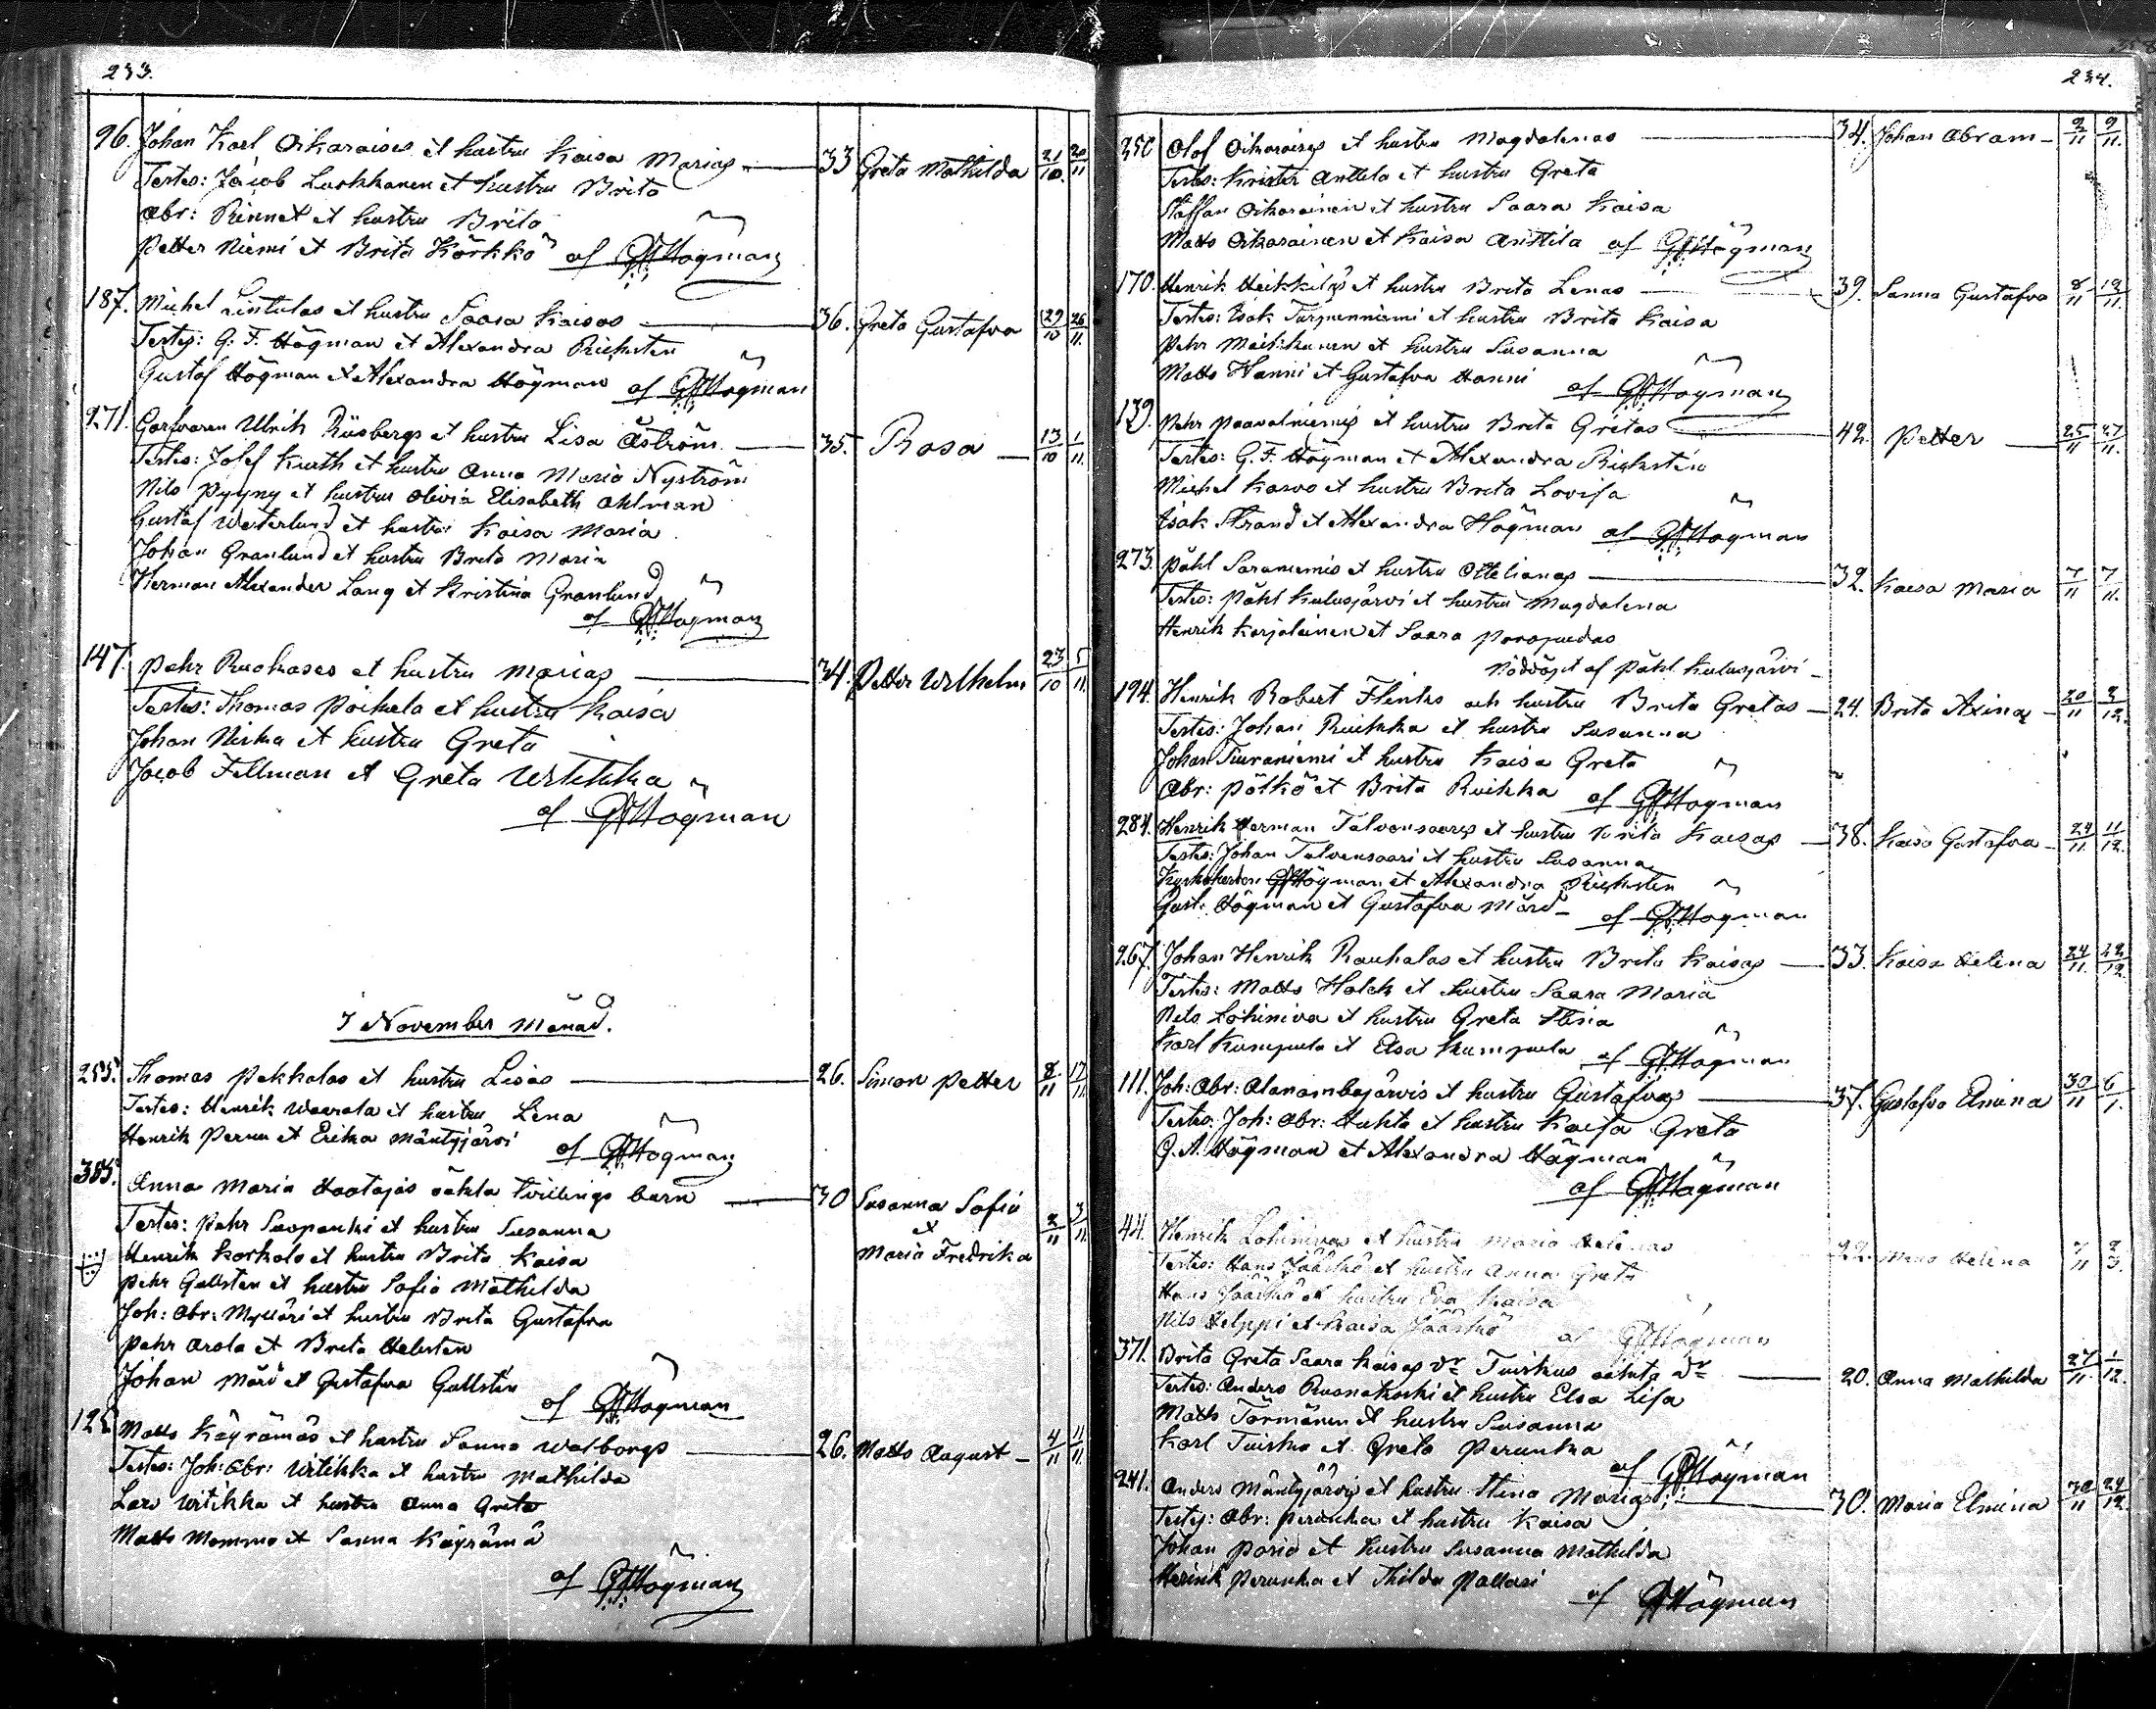 233.
96. Johan Karl Oikaraises et hustru Kaisa Marias — 33 Greta Mathilda 21/10. 20/11
Testes: Jacob Luokkanen et hustru Brita
Abr: Rinnet et hustru Brita
Petter Niemi et Brita Körkkö af GFHögman
187. Michel Lintulas et hustru Saara Kaisas — 36. Greta Gustafva 29/10 26/11.
Testes: G. F. Högman et Alexandra Richsten
Gustaf Högman et Alexandra Högman af GFHögman
271. Garfvaren Ulrik Riisbergs et hustru Lisa Åström — 35. Rosa — 13/10 1/11.
Testes: Josef Kurth et hustru Anna Maria Nyström
Nils Pyyny et hustru Olivia Elisabeth Ahlman
Gustaf Westerlund et hustru Kaisa Maria
Johan Granlund et hustru Brita Maria
Herman Alexander Lang et Kristina Granlund
af GFHögman
147. Pehr Ruokases et hustru Marias — 34. Petter Wilhelm 23/10 5/11.
Testes: Thomas Poikela et hustru Kaisa
Johan Niska et hustru Greta
Jacob Fellman et Greta Witikka
af GFHögman
i November månad.
255. Thomas Pekkalas et hustru Lisas — 26. Simon Petter 8/11 17/11
Testes: Henrik Waarala et hustru Lena
Henrik Pernu et Erika Mäntyjärvi af GFHögman
355. Anna Maria Haatajas oäkta tvillings barn — 30 Susanna Sofia 2/11 3/11.
Testes: Pehr Suopanki et hustru Susanna et
Henrik Korkalo et hustru Brita Kaisa Maria Fredrika
Pehr Gallsten et hustru Sofia Mathilda
Joh: Abr: Mylläri et hustru Brita Gustafva
Pehr Arola et Brita Hebsten
Johan Mård et Gustafva Gallsten
af GFHögman
125 Matts Käyrämäs et hustru Sanna Walborgs — 26. Matts August — 4/11 11/11.
Testes: Joh: Abr: Witikka et hustru Mathilda
Lars Witikka et hustru Anna Greta
Matts Mommo et Sanna Käyrämä
af GFHögman
234.
250 Olof Oikaraises et hustru Magdalenas — 34. Johan Abram — 2/11 9/11.
Testes: Krister Anttila et hustru Greta
Staffan Oikarainen et hustru Saara Kaisa
Matts Oikarainen et Kaisa Anttila af GFHögman
170. Henrik Heikkiläs et hustru Brita Lenas — 39. Sanna Gustafva 8/11 12/11.
Testes: Isak Turpeenniemi et hustru Brita Kaisa
Pehr Moikkanen et hustru Susanna
Matts Hanni et Gustafva Hanni af GFHögman
139. Pehr Paavalniemis et hustru Brita Gretas — 42. Petter — 25/11 27/11.
Testes: G. F. Högman et Alexandra Richstén
Michel Karvo et hustru Brita Lovisa
Isak Strand et Alexandra Högman af GFHögman
273. Påhl Saraniemis et hustru Ottelianas — 32. Kaisa Maria 7/11 7/11.
Testes: Påhl Kulusjärvi et hustru Magdalena
Henrik Karjalainen et Saara Poropudas
Nöddöpt af Påhl Kulusjärvi —
194. Henrik Robert Flinks och hustru Brita Gretas — 24. Brita Axina — 20/11 2/12.
Testes: Johan Ruikka et hustru Susanna
Johan Tuuraniemi et hustru Kaisa Greta
Abr: Pölkö et Brita Ruikka af GFHögman
284. Henrik Herman Talvensaaris et hustru Brita Kaisas — 38. Kaisa Gustafva — 24/11. 11/12.
Testes: Johan Talvensaari et hustru Susanna
Kyrkoherden GFHögman et Alexandra Richsten
Gust: Högman et Gustafva Mård — af GFHögman
267. Johan Henrik Rauhalas et hustru Brita Kaisas — 33. Kaisa Helena 24/11. 22/12
Testes: Matts Halck et hustru Saara Maria
Nils Lohiniva et hustru Greta Stina
Karl Kumpula et Elsa Kumpula af GFHögman
111. Joh: Abr: Alanambajärvis et hustru Gustafvas — 37. Gustafva Elmina 30/11 6/1.
Testes: Joh: Abr: Huhta et hustru Kaisa Greta
G. A. Högman et Alexandra Högman
af GFHögman
44. Henrik Lohinivas et hustru Maria Helenas 22. Maria Helena 7/11 2/3.
Testes: Hans Jääskö et hustru Anna Greta
Hans Jääskö et hustru Eva Kaisa
Nils Helppi et Kaisa Jääskö af GFHögman
371. Brita Greta Saara Kaisas dr Tuiskus oäkta dr — 20. Anna Mathilda 27/11. 1/12.
Testes: Anders Ruonakoski et hustru Elsa Lisa
Matts Törmänen et hustru Susanna
Karl Tuisku et Greta Perunka
af GFHögman
241. Anders Mäntyjärvis et hustru Stina Marias: — 30. Maria Elmina 30/11 24/12.
Testes: Abr: Perunka et hustru Kaisa
Johan Pario et hustru Susanna Mathilda
Henrik Perunka et Thilda Pallari
af GFHögman